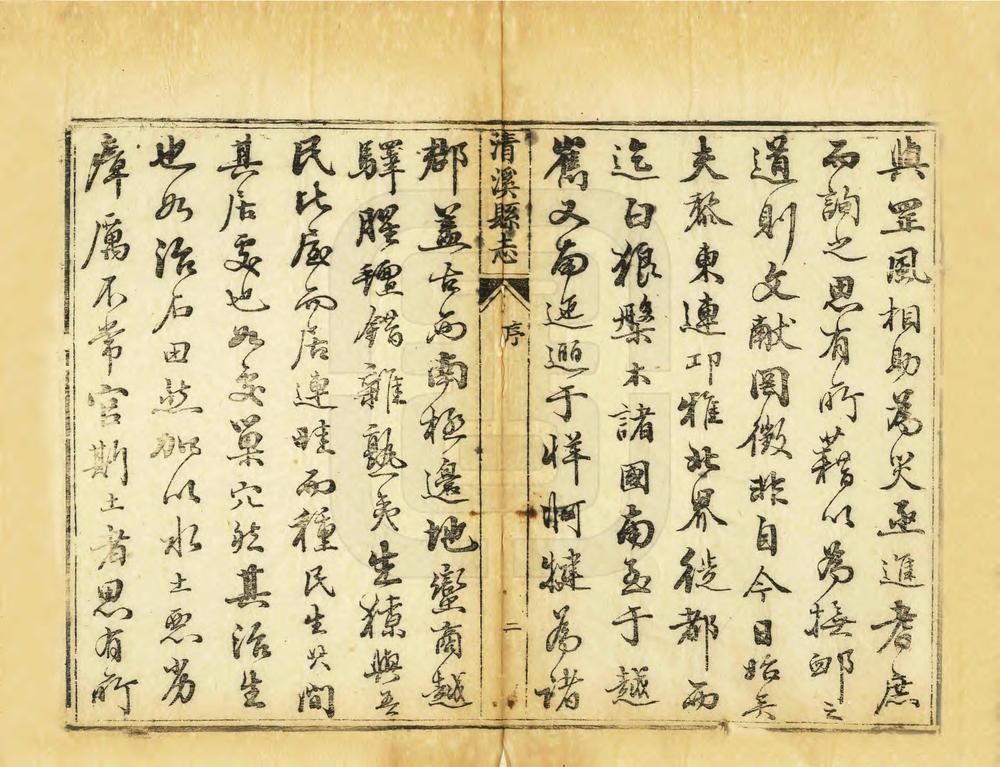 與罡風相助為災亟進耆庶
而詢之思有所藉以為撫卹之
道則文献罔徵非自今日始矣
夫黎東連邛雅北界徙都西
迄白狼槃木諸國南至于越
嶲又南迤邐于牂牁犍為諸
清溪縣志
序
二
郡蓋古西南極邊地蠻商越
驛腥羶錯雜熟夷生獠與吾
民比屋而居連畦而種民生其間
其居處也如交巢穴然其治生
也如治石田然加以水土惡劣
瘴厲不常官斯土者思有所